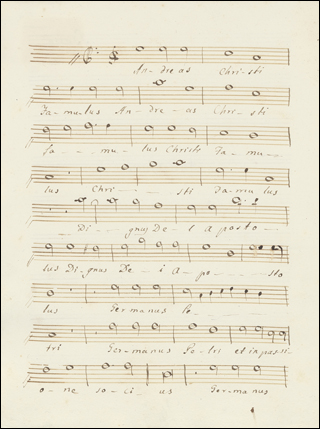 An- dre as Chri- sti
Famulus An- dre- as Chri- sti
fa- - mu- lus Christi Fa- mu- -
lus Chri- - - sti Famu lus
Di- - gnus De- i a posto- -
lus Di- gnus De- i A- po- - sto
lus Germanus
tri Ger- manus Pe- tri et in passi-
o- ne so- ci- us Ger- manus